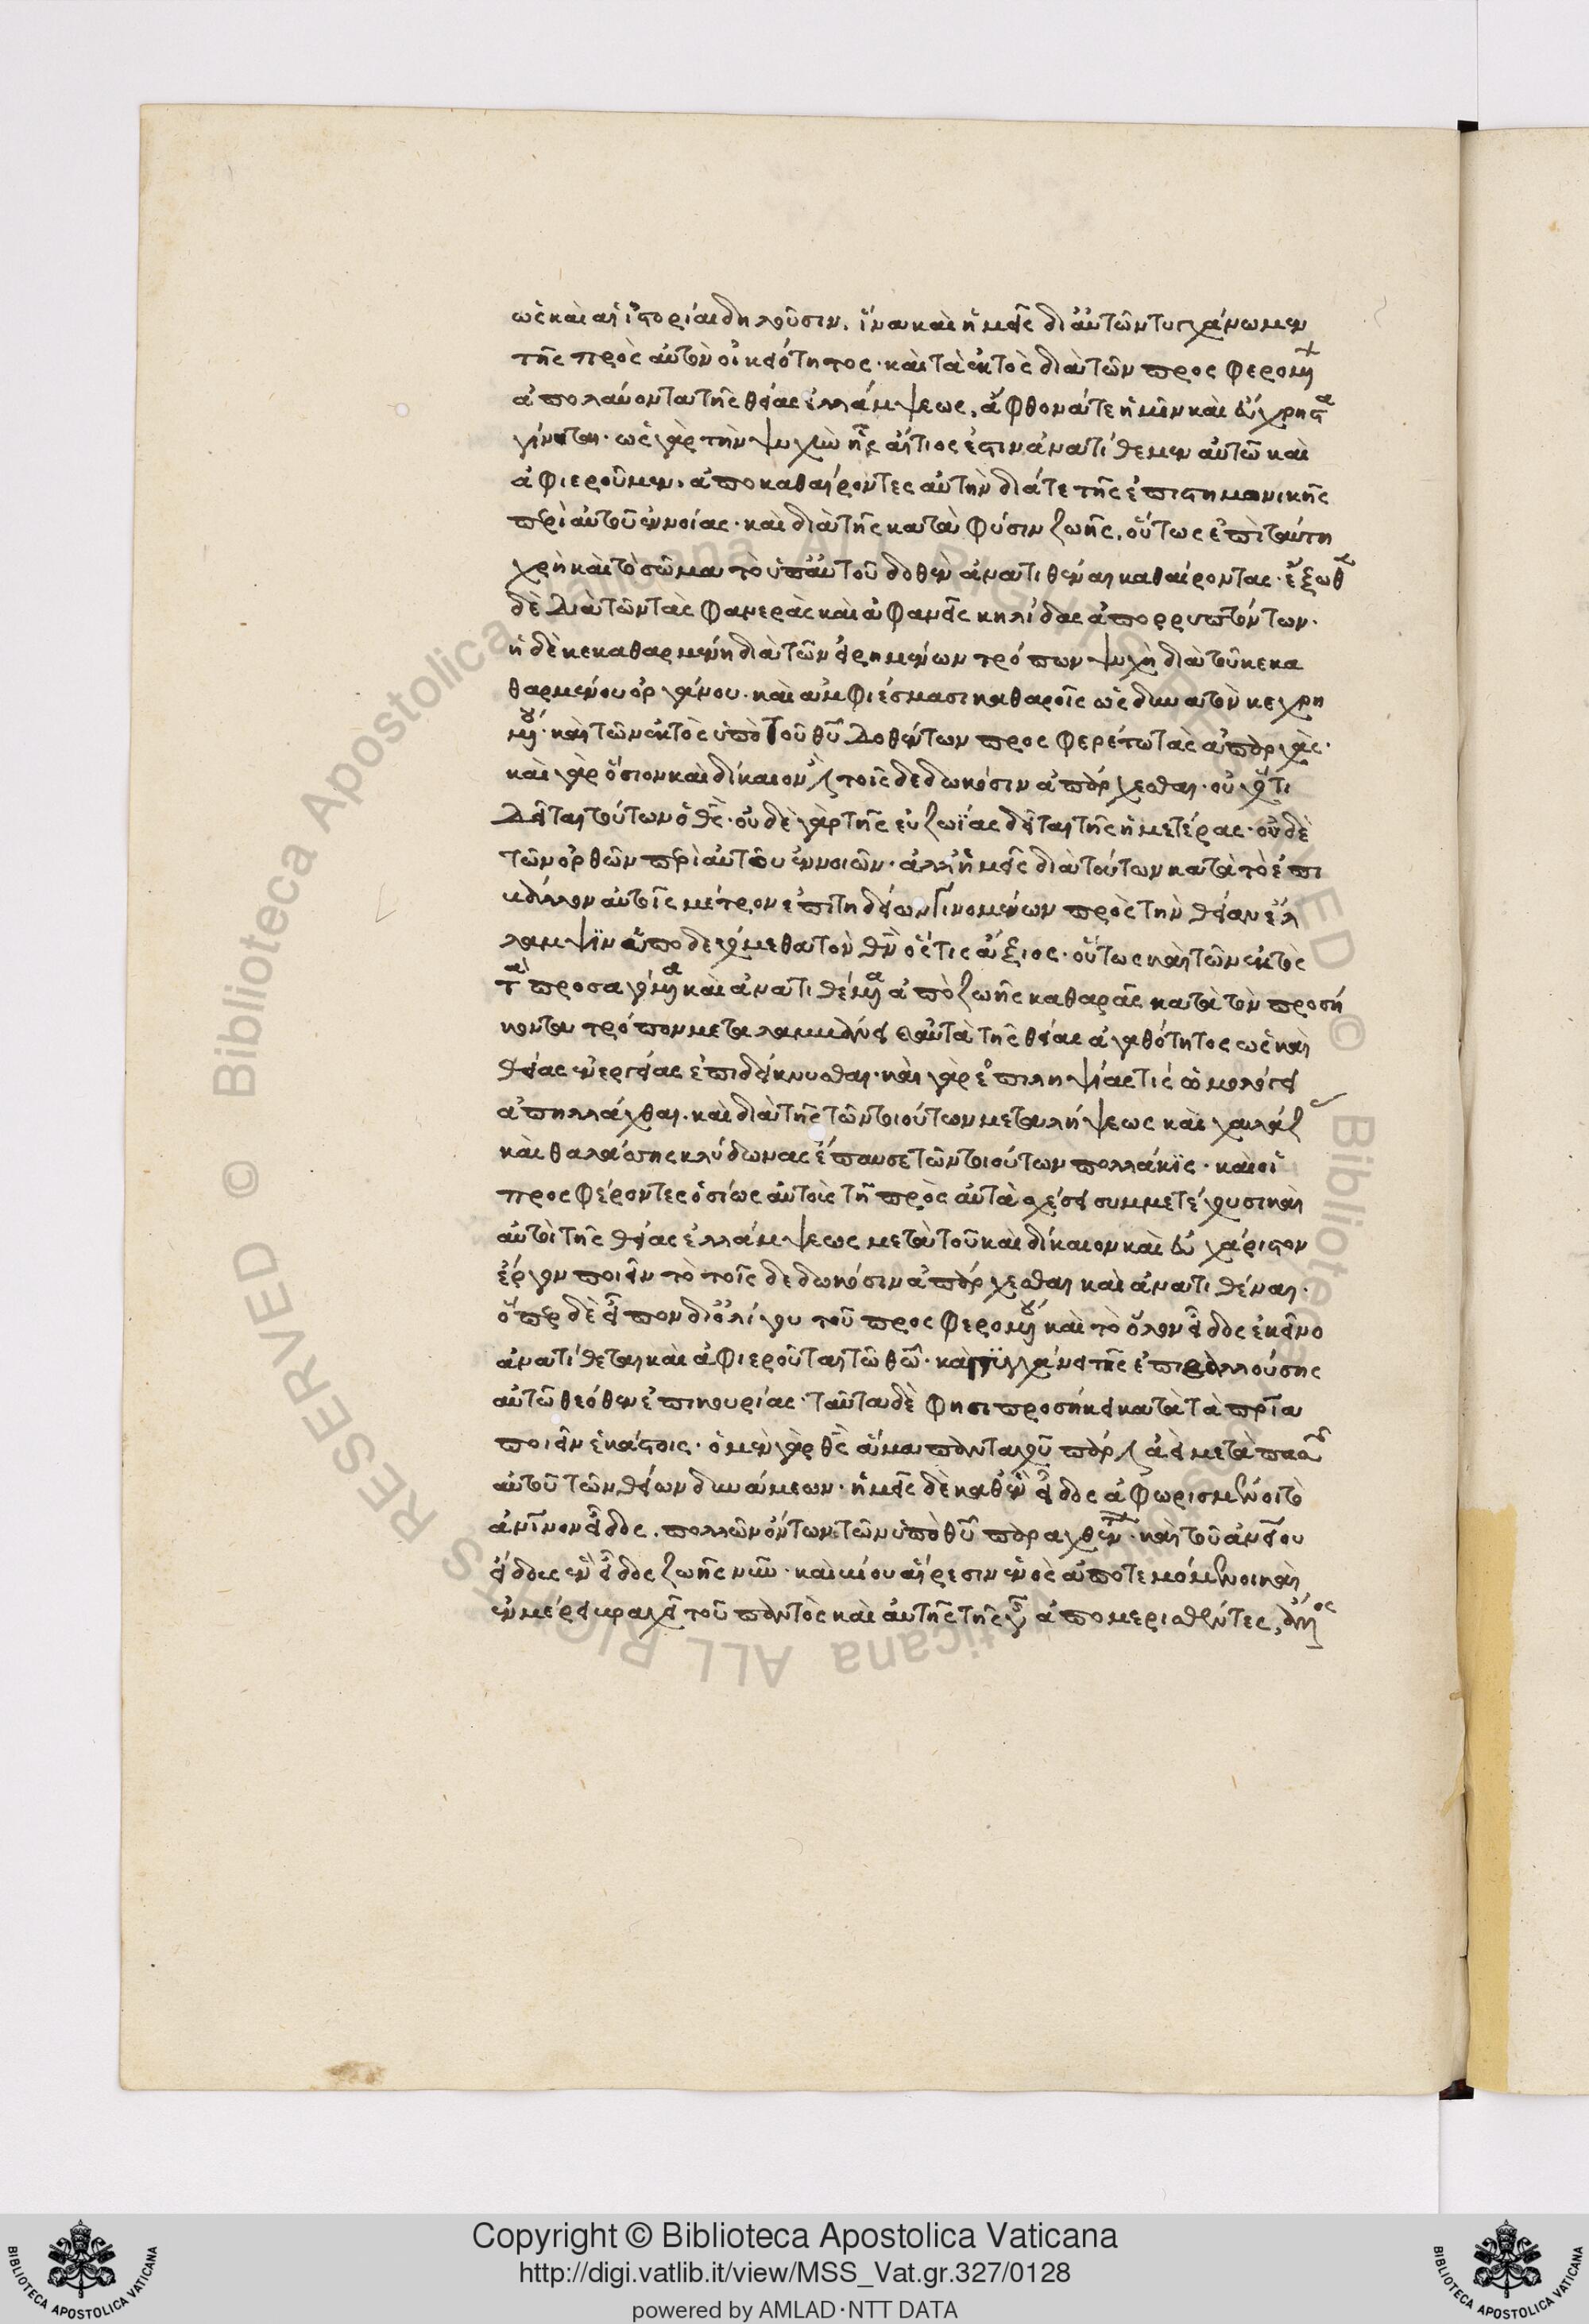 ὡς καὶ αἱ ἱστορίαι δηλοῦσιν. ἵνα καὶ ἡμεῖς δι αὐτῶν τυγχάνωμεν
τῆς πρὸς αὐτὸν οἰκειότητος· καὶ τὰ ἐκτὸς διὰ τῶν προσφερομ
ἀπολαύοντα τῆς θείας ἐλλάμψεως, ἄφθονά τε ἡμῖν καὶ εὔχρηστα
γίνεται· ὡς γὰρ τὴν ψυχὴν ἧς αἴτιός ἐστιν ἀνατίθεμεν αὐτῶ καὶ
ἀφιεροῦμεν, ἀποκαθαίροντες αὐτὴν διά τε τῆς ἐπιστημονικῆς
περὶ αὐτοῦ ἐννοίας· καὶ διὰ τῆς κατὰ φύσιν ζωῆς, οὕτως ἐπὶ ταύτη
χρὴ καὶ τὸ σῶμα τὸ ὑπ αὐτοῦ δοθὲν ἀνατιθέναι καθαίροντας· ἔξωθεν
δὲ διὰ τῶν τὰς φανερὰς καὶ ἀφανεῖς κηλίδας ἀπορρυπτόντων·
ἡ δὲ κεκαθαρμένη διὰ τῶν εἰρημένων τρόπων ψυχὴ διὰ τοῦ κεκα
θαρμένου ὀργάνου· καὶ ἀμφιέσμασι καθαροῖς ὡς δυνατὸν κεχρη
μένου· καὶ τῶν ἐκτὸς ὑπὸ τοῦ θυ δοθέντων προσφερέτω τὰς ἀπαρχάς·
καὶ γὰρ ὅσιον καὶ δίκαιον τοῖς δεδωκόσιν ἀπάρχεσθαι· οὐχ ὅτι
δεῖται τούτων ὁ θς· οὐδὲ γὰρ τῆς εὐζωΐας δεῖται τῆς ἡμετέρας· οὐδὲ
τῶν ὀρθῶν περὶ αὐτοῦ ἐννοιῶν· ἀλλ ἡμεῖς διὰ τούτων κατὰ τὸ ἐπι
βάλλον αὐτοῖς μέτρον ἐπιτηδείων γινομένων πρὸς τὴν θείαν ἔλ
λαμψιν ἀποδεχόμεθα τὸν θν ὅστις ἄξιος· οὕτως καὶ τῶν ἐκτὸς
τὰ προσαγόμενα καὶ ἀνατιθέμενα ἀπὸ ζωῆς καθαρᾶς κατὰ τὸν προσή
κοντα τρόπον μεταλαμβάνει αὐτὰ τῆς θείας ἀγαθότητος ὡς καὶ
θείας ἐνεργείας ἐπιδείκνυσθαι· καὶ γὰρ ἐπιληψίας τίς ὡμολόγει
ἀπηλλάχθαι· καὶ διὰ τῆς τῶν τοιούτων μεταλήψεως καὶ χαλάζας
καὶ θαλάσσης κλύδωνας ἔπαυσε τῶν τοιούτων πολλάκις· καὶ οἱ
προσφέροντες ὁσίως αὐτοῖς τῆ πρὸς αὐτὰ σχέσει συμμετέχουσι καὶ
αὐτοὶ τῆς θείας ἐλλάμψεως μετὰ τοῦ καὶ δίκαιον καὶ εὐχάριστον
ἔργον ποιεῖν τὸ τοῖς δεδωκόσιν ἀπάρχεσθαι καὶ ἀνατιθέναι·
ὅπερ δὲ εἶπον δι ὀλίγου τοῦ προσφερομένου καὶ τὸ ὅλον εἶδος ἐκεῖνο
ἀνατίθεται καὶ ἀφιεροῦται τῶ θω· καὶ τυγχάνει τῆς ἐπιβαλλούσης
αὐτῶ θεόθεν ἐπικουρίας· ταῦτα δὲ φησι προσήκει κατὰ τὰ πάτρια
ποιεῖν ἑκάστοις· ὁ μὲν γὰρ θς ἅμα πανταχοῦ πάρεστιν ἀεὶ μετὰ πασῶν
αὐτοῦ τῶν θείων δυνάμεων· ἡμεῖς δὲ καθ ἓν εἶδος ἀφωρισμένοι τὸ
ἀνινον εἶδος, πολλῶν ὄντων τῶν ὑπὸ θυ παραχθέντων· καὶ τοῦ ἀνείου
εἴδους ἓν εἶδος ζωῆς νῦν· καὶ βίου αἵρεσιν ἑνὸς ἀποτεμόμενοι καὶ
ἐν μέρει βραχεῖ τοῦ παντὸς καὶ αὐτῆς τῆς γῆς ἀπομερισθέντες,
Copyright © Biblioteca Apostolica Vaticana
http://digi.vatlib.it/view/MSS_Vat.gr.327/0128
powered by AMLAD·NTT DATA
BIBLIOTECA APOSTOLICA VATICANA
BIBLIOTECA APOSTOLICA VATICANA
© Biblioteca Apostolica Vaticana ALL RIGHTS RESERVED © Biblioteca Apostolica Vaticana ALL RIGHTS RESERVED